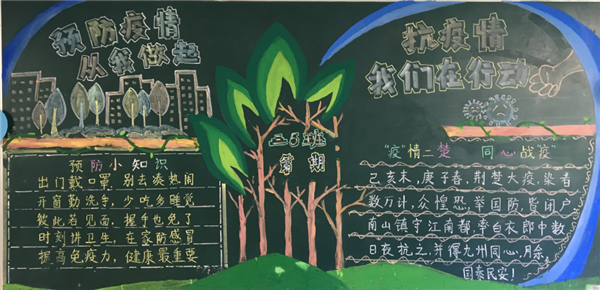 预防疫情
从我做起
预防小知识
出门戴口罩,别去凑热闹
开窗勤洗手,少吃多睡觉
彼此若见面,握手也免了
时刻讲卫生,在家防感冒
提高免疫力,健康最重要
二5班
首期
抗疫情
我们在行动
"疫"情二楚 同心战疫"
己亥末,庚子春,荆楚大疫,染者
数万计,众惶恐,举国防,皆闭户
南山镇守江南都,率白衣郎中数
日夜抗之,并得九州同心,月余
国泰民安!